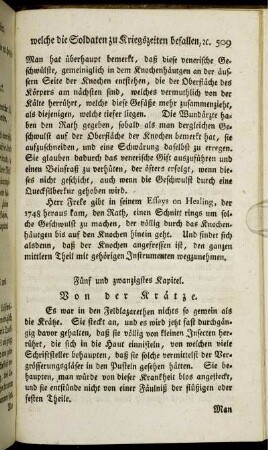 welche die Soldaten zu Kriegszeiten befallen, ꝛc. 509
Man hat überhaupt bemerkt, daß diese venerische Ge-
schwülste, gemeiniglich in dem Knochenhäutgen an der äus-
sern Seite der Knochen entstehen, die der Oberfläche des
Körpers am nächsten sind, welches vermuthlich von der
Kälte herrührt, welche diese Gefäße mehr zusammenzieht,
als diejenigen, welche tiefer liegen. Die Wundärzte ha-
ben den Rath gegeben, sobald als man dergleichen Ge-
schwulst auf der Oberfläche der Knochen bemerkt hat, sie
aufzuschneiden, und eine Schwärung daselbst zu erregen.
Sie glauben dadurch das venerische Gift auszuführen und
einen Beinfraß zu verhüten, der öfters erfolgt, wenn die-
ses nicht geschicht, auch wenn die Geschwulst durch eine
Quecksilberkur gehoben wird.
Herr Freke gibt in seinem Essays on Healing, der
1748 heraus kam, den Rath, einen Schnitt rings um sol-
che Geschwulst zu machen, der völlig durch das Knochen-
häutgen bis auf den Knochen hinein geht. Und findet sich
alsdenn, daß der Knochen angefressen ist, den ganzen
mittlern Theil mit gehörigen Instrumenten wegzunehmen.
Fünf und zwanzigstes Kapitel.
Von der Krätze.
Es war in den Feldlazarethen nichts so gemein als
die Kräße. Sie steckt an, und es wird jetzt fast durchgän-
gig davor gehalten, daß sie völlig von kleinen Insecten her-
rühret, die sich in die Haut einnisteln, von welchen viele
Schriftsteller behaupten, daß sie solche vermittelst der Ver-
grösserungsgläser in den Pusteln gesehen hätten. Sie be-
haupten, man würde von dieser Krankheit blos angesteckt,
und sie entstünde nicht von einer Fäulniß der flüßigen oder
festen Theile.
Man